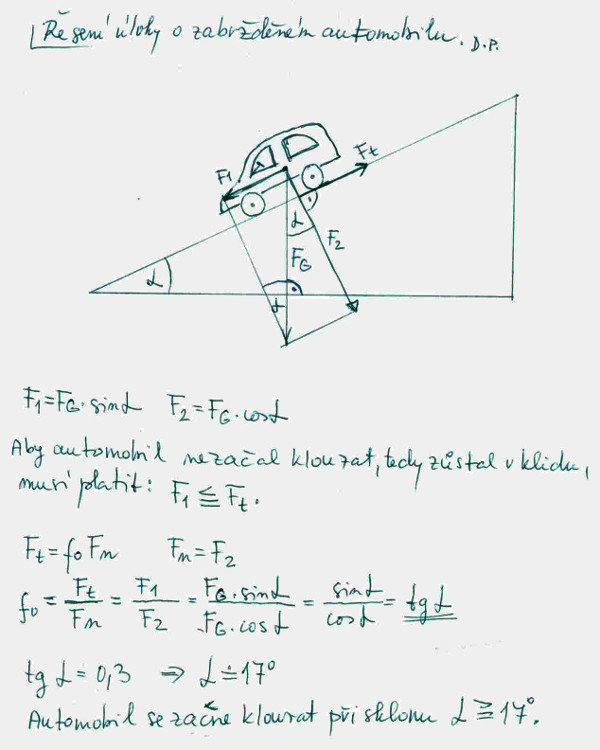 Řešení úlohy o zabrzděném automobilu. D.P.
F1
Ft
α
F2
FG
α
α
F1=FG·sinα F2=FG·cosα
Aby automobil nezačal klouzat, tedy zůstal v klidu,
musí platit: F1 ≦ Ft.
Ft=f0 Fn Fn=F2
f0 = Ft/Fn = F1/F2 = FG·sinα/FG·cosα = sinα/cosα = tgα
tg α = 0,3 ⇒ α ≐ 17°
Automobil se začne klouzat při sklonu α ≧ 17°.